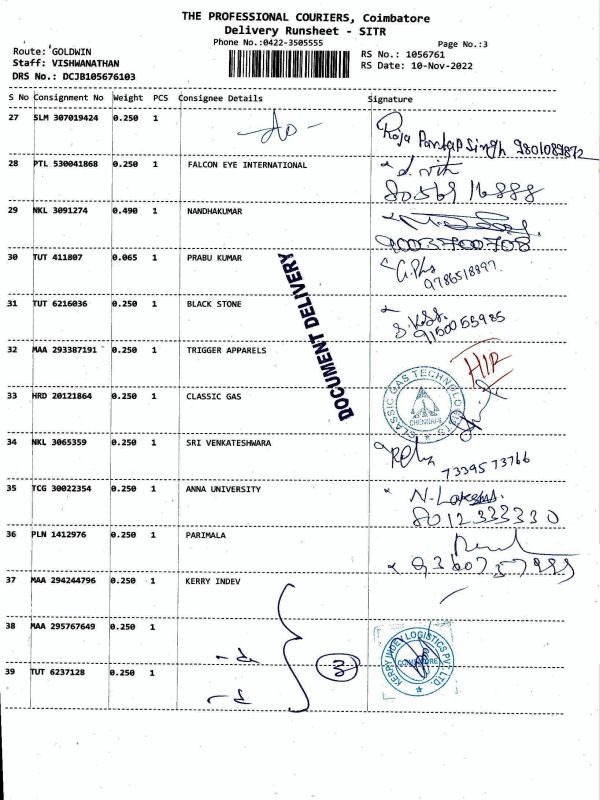 THE PROFESSIONAL COURIERS, Coimbatore
Delivery Runsheet - SITR
Phone No.:0422-3505555 Page No.:3
Route: GOLDWIN RS No.: 1056761
Staff: VISHWANATHAN RS Date: 10-Nov-2022
DRS No.: DCJB105676103
S No Consignment No Weight PCS Consignee Details Signature
27 SLM 307019424 0.250 1 Raja Pantap Singh 9801089872
28 PTL 530041868 0.250 1 FALCON EYE INTERNATIONAL
80569 16888
29 NKL 3091274 0.490 1 NANDHAKUMAR
9003700708
30 TUT 411807 0.065 1 PRABU KUMAR
9786518897
31 TUT 6216036 0.250 1 BLACK STONE
9150055985
DOCUMENT DELIVERY
32 MAA 293387191 0.250 1 TRIGGER APPARELS
33 HRD 20121864 0.250 1 CLASSIC GAS
CLASSIC GAS TECHNOLOGISTS
CHENNAI-8
34 NKL 3065359 0.250 1 SRI VENKATESHWARA
7339573766
35 TCG 30022354 0.250 1 ANNA UNIVERSITY
8012333330
36 PLN 1412976 0.250 1 PARIMALA
37 MAA 294244796 0.250 1 KERRY INDEV
38 MAA 295767649 0.250 1
KERRY INDEV LOGISTICS PVT. LTD.
COIMBATORE
39 TUT 6237128 0.250 1
3